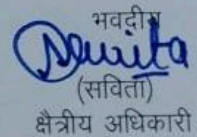 भवदीय
(सविता)
क्षेत्रीय अधिकारी